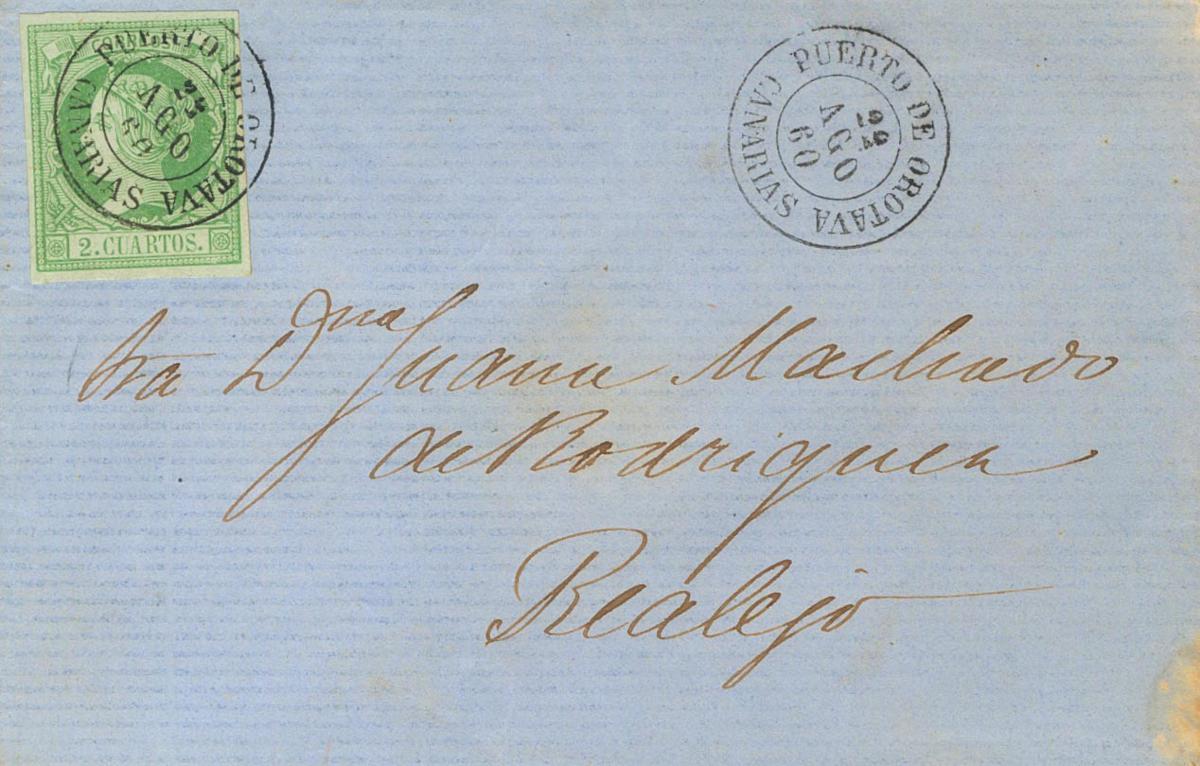 PUERTO DE OROTAVA
22
AGO
60
CANARIAS
2. CUARTOS.
PUERTO DE OROTAVA
22
AGO
60
CANARIAS
Sra Dna Juana Machado
de Rodriguez
Realejo